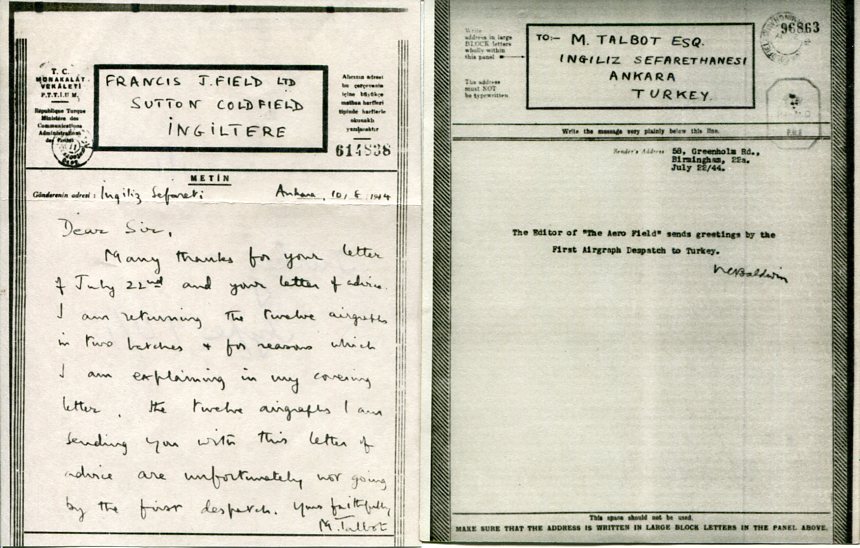 T. C.
MÜNAKALÂT
VEKÂLETİ
P.T.T.İ U.M.
République Turque
Ministère des
Communications
Administrations
FRANCIS J. FIELD LTD
SUTTON COLDFIELD
İNGİLTERE
Alıcının adresi
bu çerçevenin
içine büyükçe
matbaa harfleri
tipinde harflerle
okunaklı
yazılacaktır
614838
METİN
Gönderenin adresi : İngiliz Sefareti Ankara, 10/8/1944
Dear Sir,
Many thanks for your letter
of July 22nd and your letter of advice.
I am returning the twelve airgraphs
in two batches & for reasons which
I am explaining in my covering
letter, the twelve airgraphs I am
sending you with this letter of
advice are unfortunately not going
by the first despatch. Yours faithfully,
M. Talbot
Write
address in large
BLOCK letters
wholly within
this panel
The address
must NOT
be typewritten.
TO:- M. TALBOT ESQ.
INGILIZ SEFARETHANESI
ANKARA
TURKEY.
96863
Write the message very plainly below this line.
Sender's Address 58, Greenholm Rd.,
Birmingham, 22a.
July 22/44.
The Editor of "The Aero Field" sends greetings by the
First Airgraph Despatch to Turkey.
N C Baldwin
This space should not be used.
MAKE SURE THAT THE ADDRESS IS WRITTEN IN LARGE BLOCK LETTERS IN THE PANEL ABOVE.